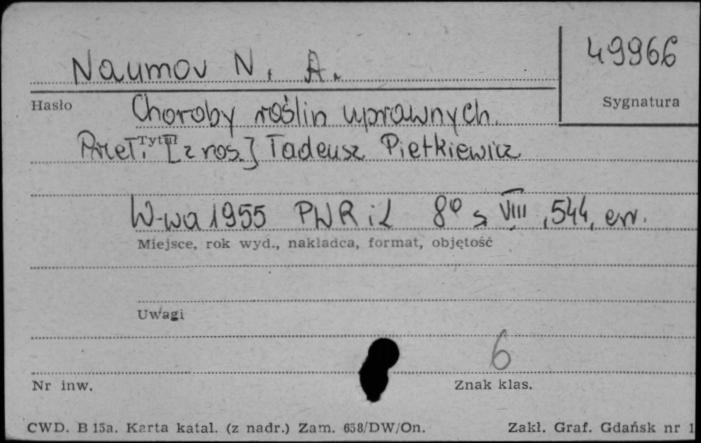 49966
Naumov N. A.
Hasło
Sygnatura
Choroby roślin uprawnych.
Tytuł
Przeł. [z ros.] Tadeusz Pietkiewicz
W-wa 1955 PWRiL 8° s. VIII, 544, err.
Miejsce, rok wyd., nakładca, format, objętość
Uwagi
6
Nr inw.
Znak klas.
CWD. B 15a. Karta katal. (z nadr.) Zam. 658/DW/On.
Zakł. Graf. Gdańsk nr 1